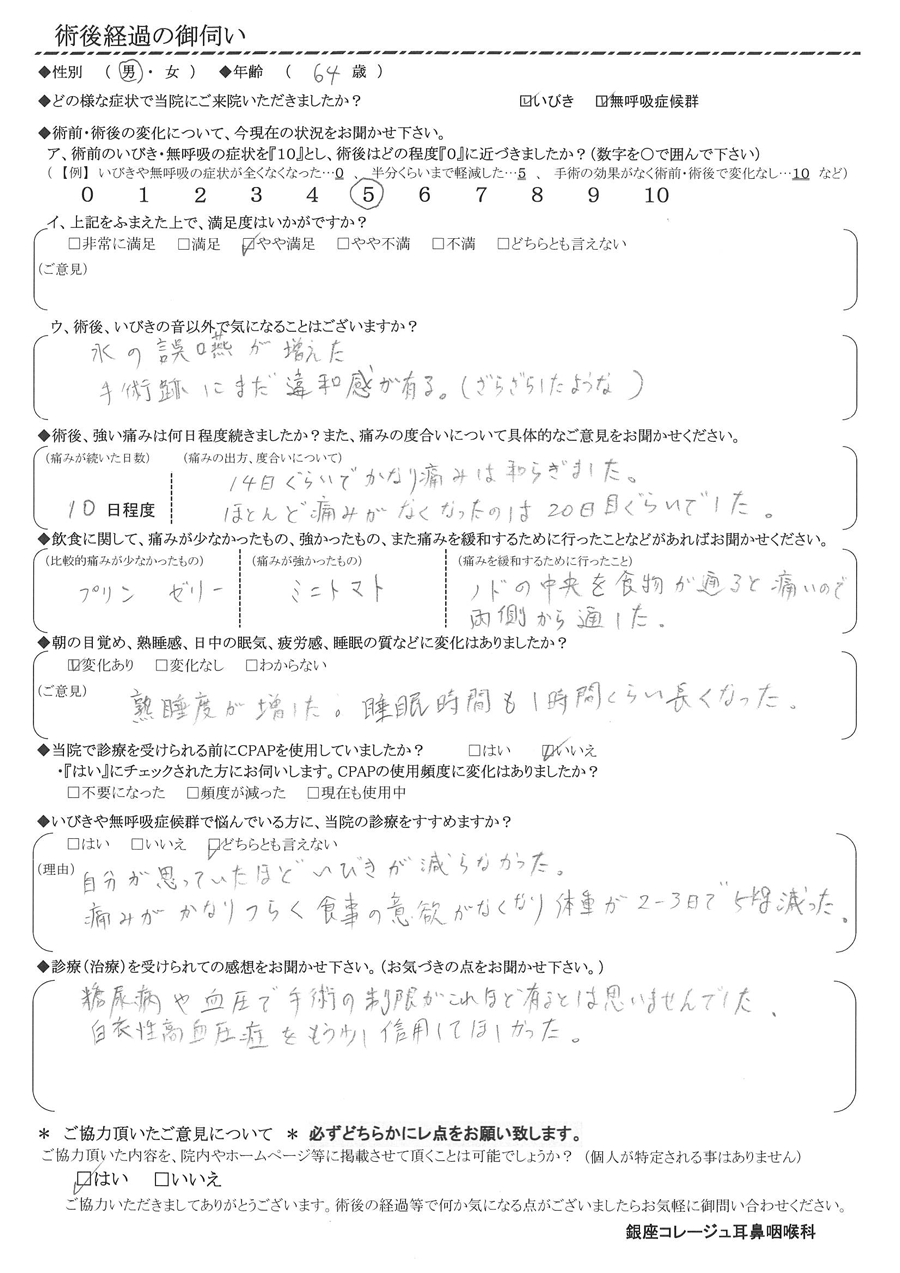 術後経過の御伺い
◆性別 （ 男 ・ 女 ） ◆年齢 （ 64 歳 ）
◆どの様な症状で当院にご来院いただきましたか？ ☑いびき ☑無呼吸症候群
◆術前・術後の変化について、今現在の状況をお聞かせ下さい。
ア、術前のいびき・無呼吸の症状を『10』とし、術後はどの程度『0』に近づきましたか？（数字を○で囲んで下さい）
（ 【例】 いびきや無呼吸の症状が全くなくなった…0 、 半分くらいまで軽減した…5 、 手術の効果がなく術前・術後で変化なし…10 など）
0 1 2 3 4 5 6 7 8 9 10
イ、上記をふまえた上で、満足度はいかがですか？
□非常に満足 □満足 ☑やや満足 □やや不満 □不満 □どちらとも言えない
（ご意見）
ウ、術後、いびきの音以外で気になることはございますか？
水の誤嚥が増えた
手術跡にまだ違和感が有る。（ざらざらしたような）
◆術後、強い痛みは何日程度続きましたか？また、痛みの度合いについて具体的なご意見をお聞かせください。
（痛みが続いた日数） （痛みの出方、度合いについて）
14日ぐらいでかなり痛みは和らぎました。
10 日程度 ほとんど痛みがなくなったのは20日目ぐらいでした。
◆飲食に関して、痛みが少なかったもの、強かったもの、また痛みを緩和するために行ったことなどがあればお聞かせください。
（比較的痛みが少なかったもの） （痛みが強かったもの） （痛みを緩和するために行ったこと）
プリン ゼリー ミニトマト ノドの中央を食物が通ると痛いので
両側から通した。
◆朝の目覚め、熟睡感、日中の眠気、疲労感、睡眠の質などに変化はありましたか？
☑変化あり □変化なし □わからない
（ご意見） 熟睡度が増した。睡眠時間も1時間くらい長くなった。
◆当院で診療を受けられる前にCPAPを使用していましたか？ □はい ☑いいえ
・『はい』にチェックされた方にお伺いします。CPAPの使用頻度に変化はありましたか？
□不要になった □頻度が減った □現在も使用中
◆いびきや無呼吸症候群で悩んでいる方に、当院の診療をすすめますか？
□はい □いいえ ☑どちらとも言えない
（理由） 自分が思っていたほどいびきが減らなかった。
痛みがかなりつらく食事の意欲がなくなり体重が2-3日で5kg減った。
◆診療（治療）を受けられての感想をお聞かせ下さい。（お気づきの点をお聞かせ下さい。）
糖尿病や血圧で手術の制限がこれほど有るとは思いませんでした、
白衣性高血圧症をもう少し信用してほしかった。
＊ ご協力頂いたご意見について ＊ 必ずどちらかにレ点をお願い致します。
ご協力頂いた内容を、院内やホームページ等に掲載させて頂くことは可能でしょうか？（個人が特定される事はありません）
☑はい □いいえ
ご協力いただきましてありがとうございます。術後の経過等で何か気になる点がございましたらお気軽に御問い合わせください。
銀座コレージュ耳鼻咽喉科